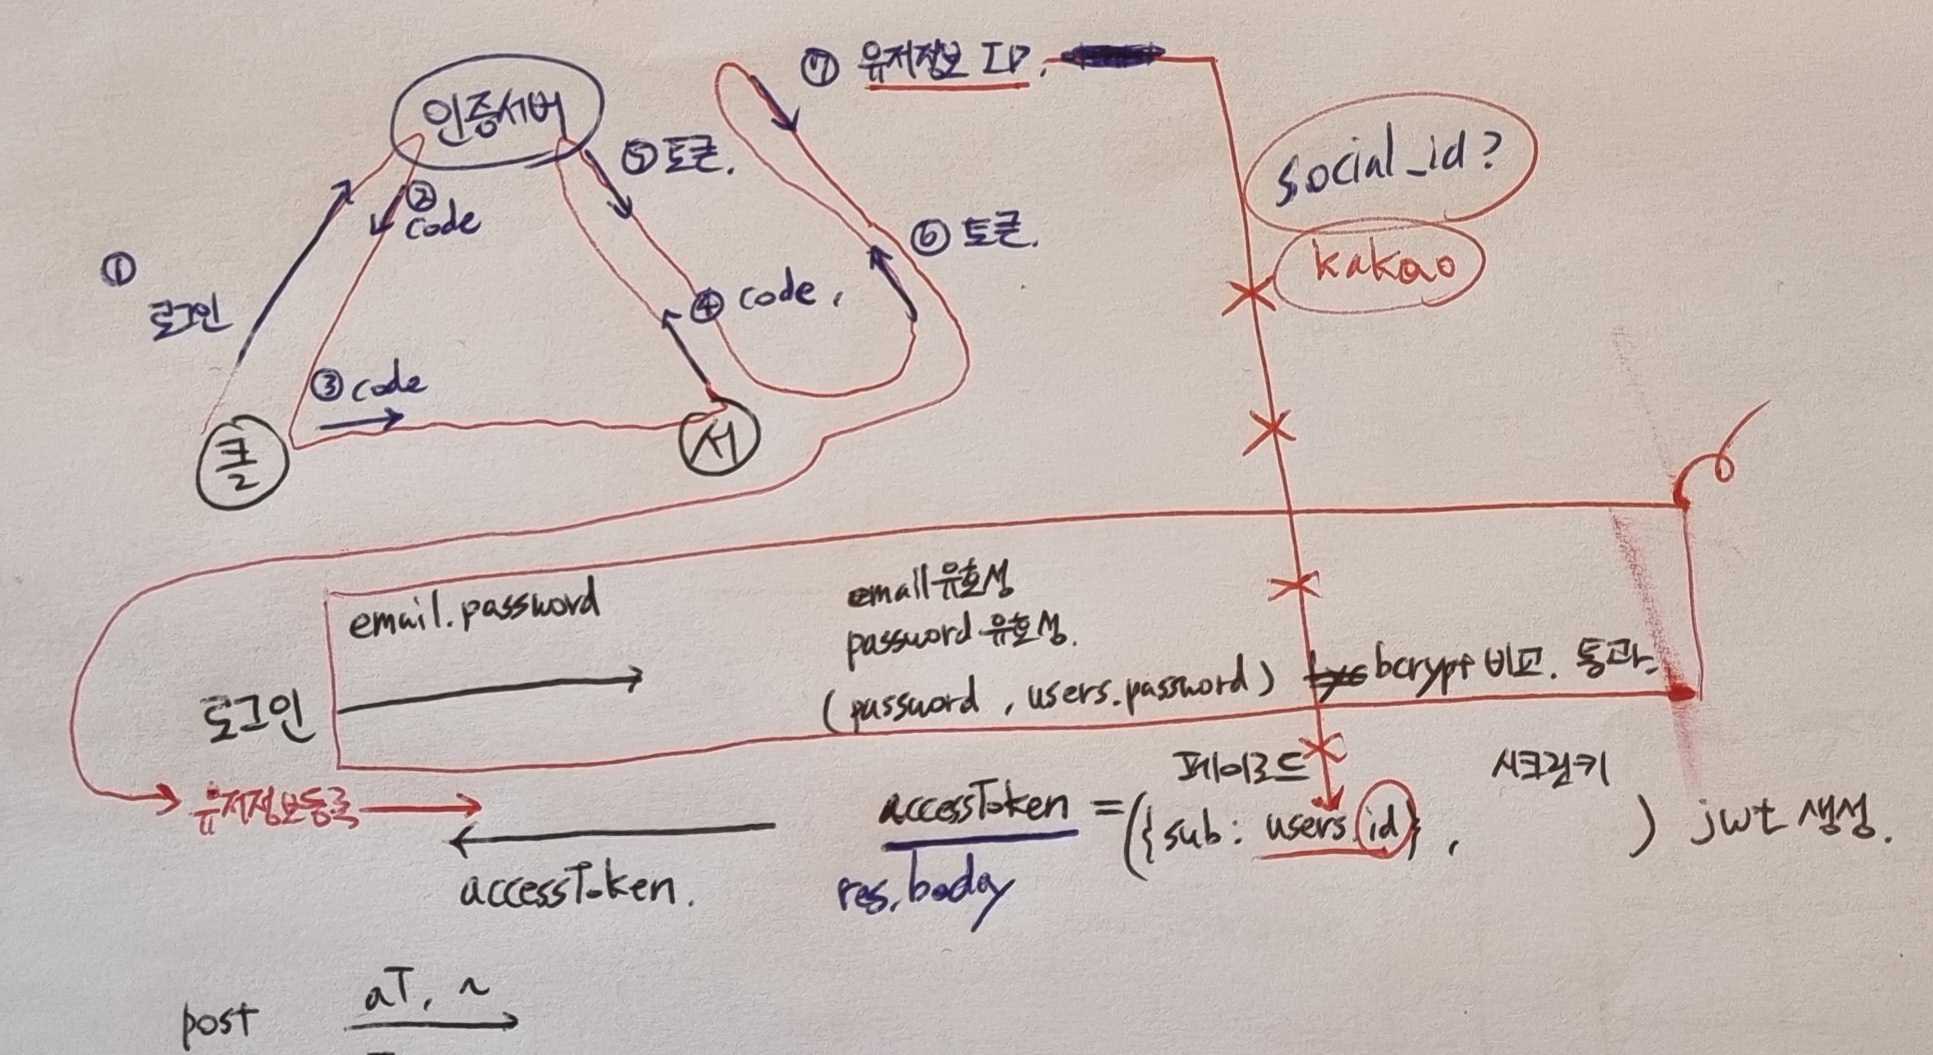 ⑦ 유저정보 ID.
인증서버
⑤ 토큰.
social_id?
② code
⑥ 토큰.
kakao
①
로그인
④ code,
③ code
클
서
email.password
email유효성
password유효성.
(password, users.password) bcrypt 비교. 통과.
로그인
페이로드
시크릿키
유저정보등록
accessToken = ({sub: users.id}, ) jwt 생성.
accessToken.
res.boday
post
aT, ~